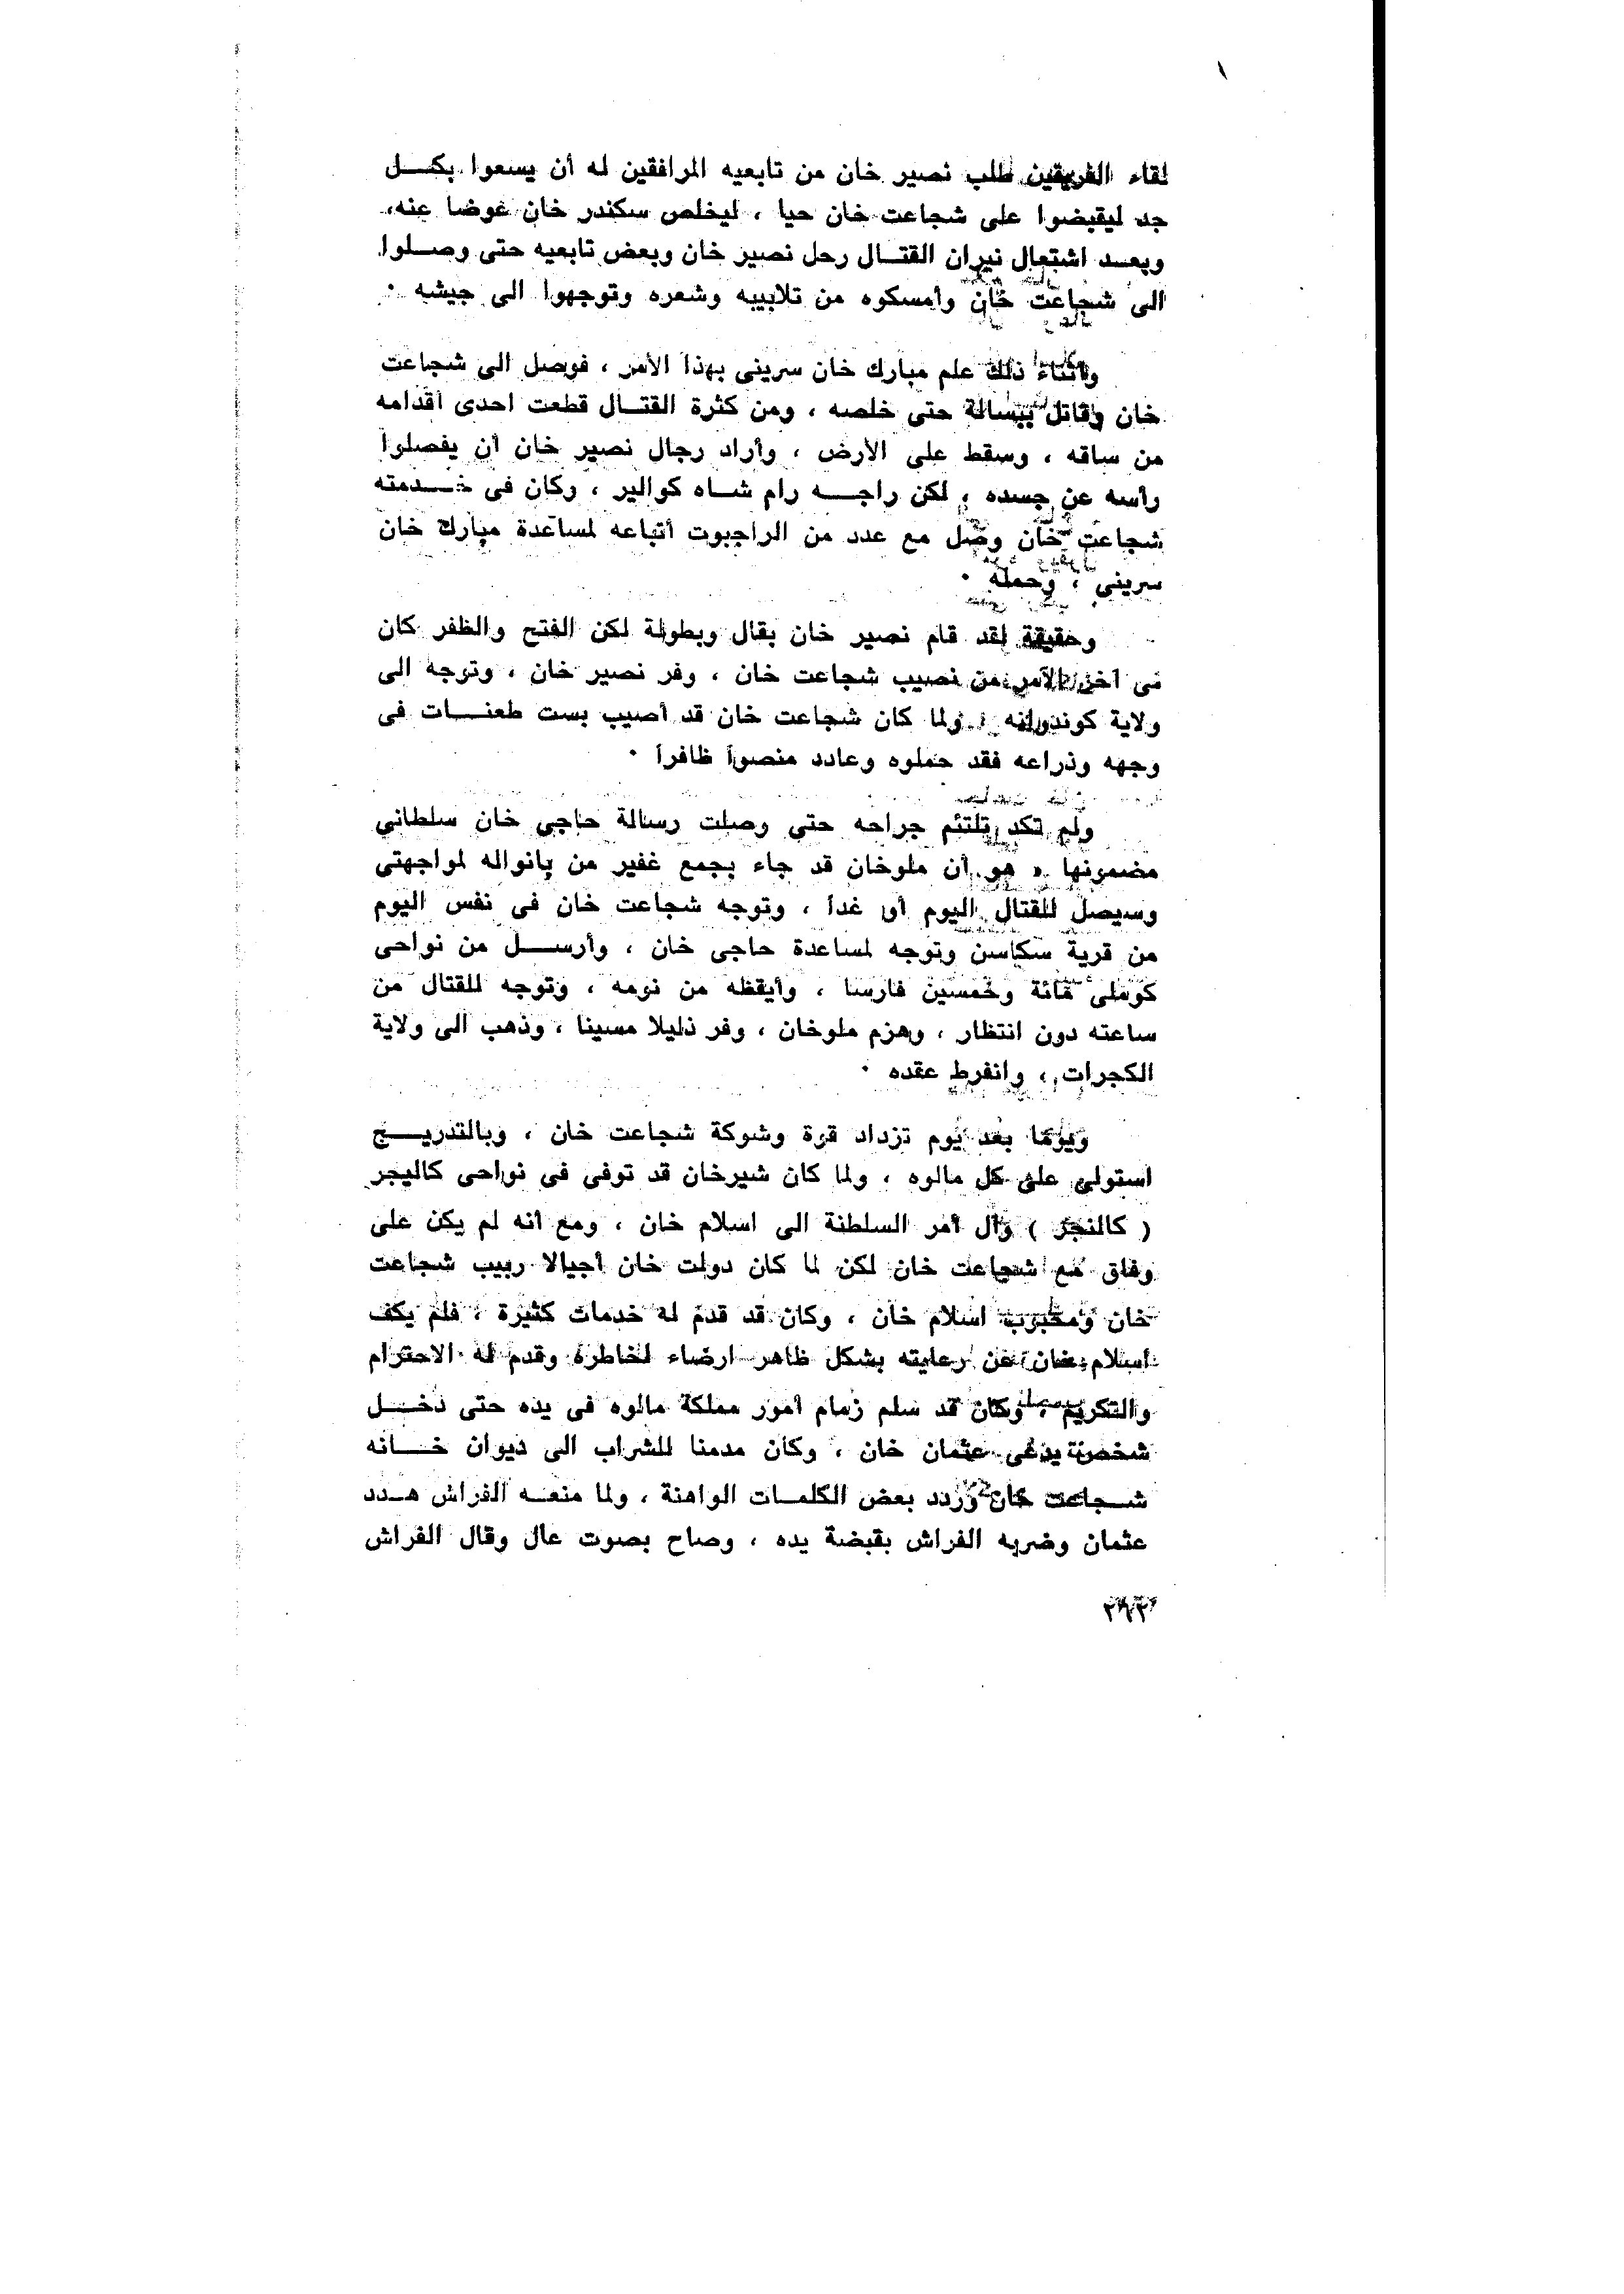 لقاء الفريقين طلب نصير خان من تابعيه المرافقين له أن يسعوا بكــل
جد ليقبضوا على شجاعت خان حيا ، ليخلص سكندر خان عوضا عنه،
وبعــد اشتعال نيران القتــال رحل نصير خان وبعض تابعيه حتى وصــلوا
الى شجاعت خان وأمسكوه من تلابيبه وشعره وتوجهوا الى جيشه ·
وأثناء ذلك علم مبارك خان سرينى بهذا الأمر ، فوصل الى شجاعت
خان وقاتل ببسالة حتى خلصه ، ومن كثرة القتــال قطعت احدى أقدامه
من ساقه ، وسقط على الأرض ، وأراد رجال نصير خان أن يفصلوا
رأسه عن جسده ، لكن راجــه رام شــاه كوالير ، وكان فى خــدمته
شجاعت خان وصل مع عدد من الراجبوت أتباعه لمساعدة مبارك خان
سرينى ، وحمله ·
وحقيقة لقد قام نصير خان بقال وبطولة لكن الفتح والظفر كان
فى آخر الأمر من نصيب شجاعت خان ، وفر نصير خان ، وتوجه الى
ولاية كوندوانه ، ولما كان شجاعت خان قد أصيب بست طعنــات فى
وجهه وذراعه فقد حملوه وعادد منصوا ظافرا ·
ولم تكد تلتئم جراحه حتى وصلت رسالة حاجى خان سلطانى
مضمونها « هو أن ملوخان قد جاء بجمع غفير من بانواله لمواجهتى
وسيصل للقتال اليوم أو غدا ، وتوجه شجاعت خان فى نفس اليوم
من قرية سكاسن وتوجه لمساعدة حاجى خان ، وأرســل من نواحى
كوملى مائة وخمسين فارسا ، وأيقظه من نومه ، وتوجه للقتال من
ساعته دون انتظار ، وهزم ملوخان ، وفر ذليلا مسينا ، وذهب الى ولاية
الكجرات ، وانفرط عقده ·
ويوما بعد يوم تزداد قوة وشوكة شجاعت خان ، وبالتدريــج
استولى على كل مالوه ، ولما كان شيرخان قد توفى فى نواحى كاليجر
( كالنجر ) وآل أمر السلطنة الى اسلام خان ، ومع أنه لم يكن على
وفاق مع شجاعت خان لكن لما كان دولت خان أجيالا ربيب شجاعت
خان ومحبوب اسلام خان ، وكان قد قدم له خدمات كثيرة ، فلم يكف
اسلام خان عن رعايته بشكل ظاهر ارضاء لخاطره وقدم له الاحترام
والتكريم ، وكان قد سلم زمام أمور مملكة مالوه فى يده حتى دخــل
شخص يدعى عثمان خان ، وكان مدمنا للشراب الى ديوان خــانه
شــجاعت خان وردد بعض الكلمــات الواهنة ، ولما منعــه الفراش هــدد
عثمان وضربه الفراش بقبضة يده ، وصاح بصوت عال وقال الفراش